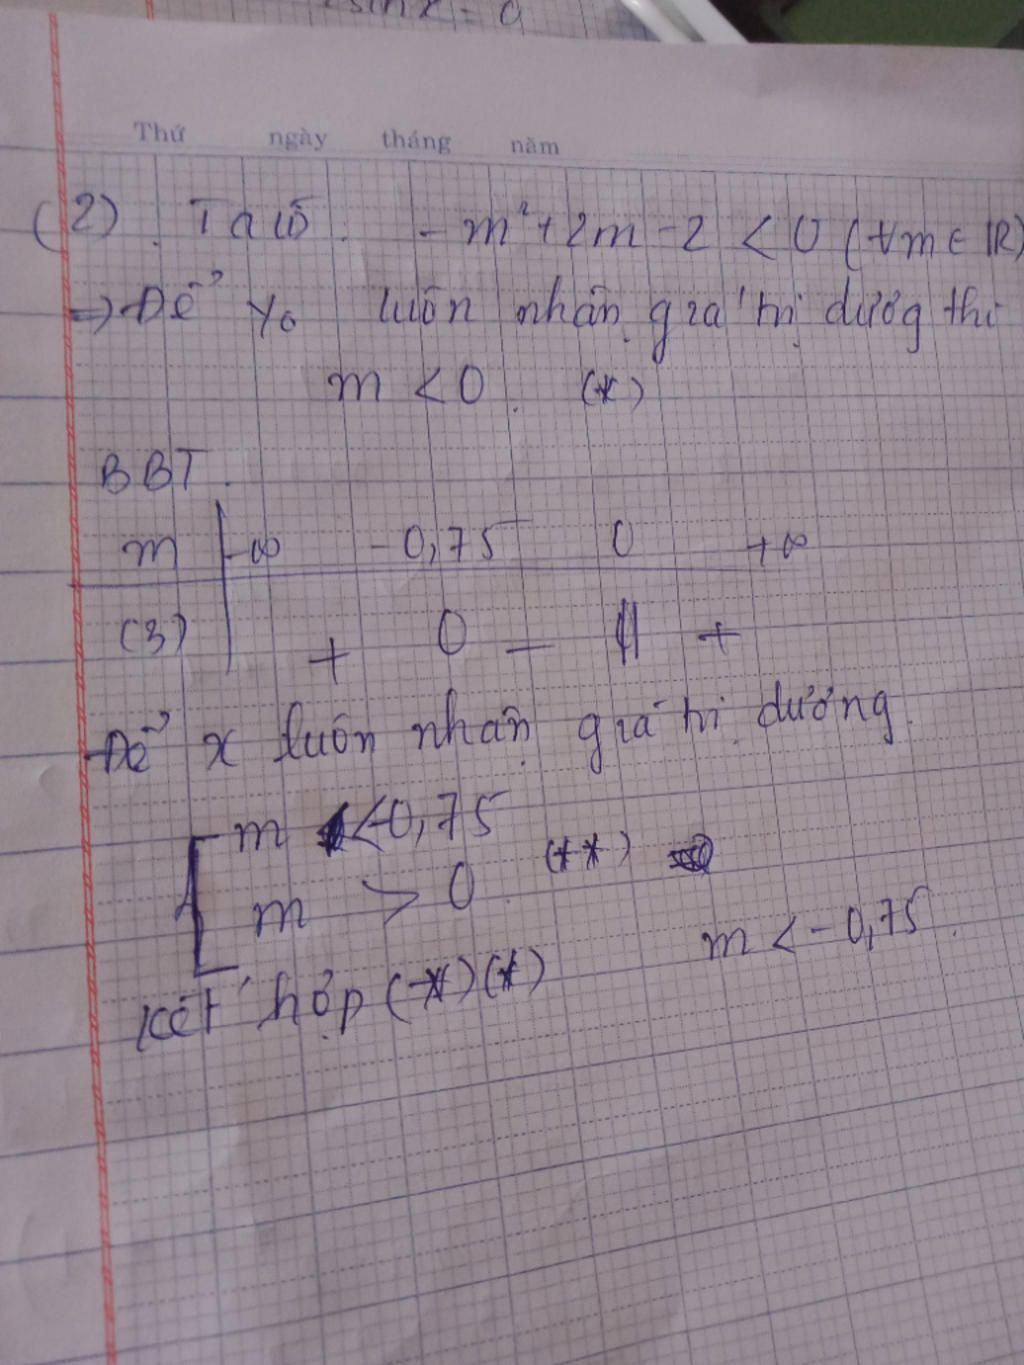 sinx = 0
Thứ ngày tháng năm
(2). Ta có. - m² + 2m - 2 < 0 (∀m ∈ R)
=> Để y₀ luôn nhận giá trị dươg thì
m < 0. (*)
BBT.
m -∞ -0,75 0 +∞
(3) + 0 - || +
Để x luôn nhận giá trị dương.
[ m < -0,75
m > 0. (**)
m < - 0,75.
Kết hợp (*)(*)